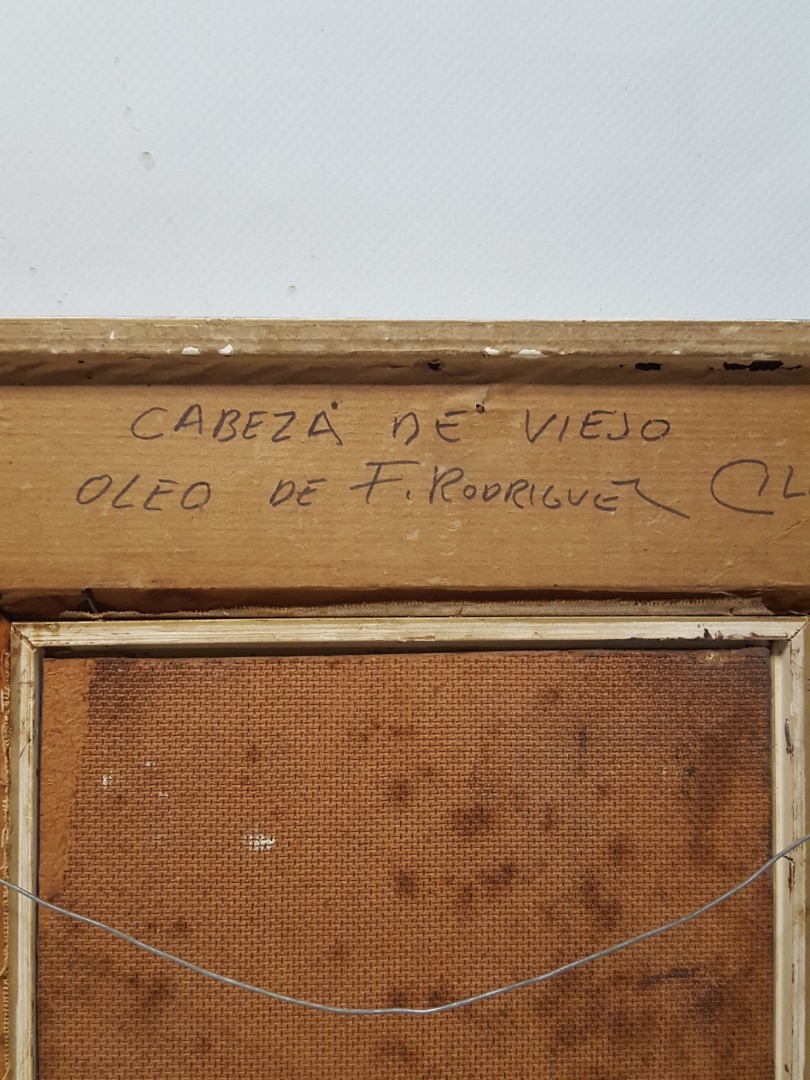 CABEZA DE VIEJO
OLEO DE F. RODRIGUEZ